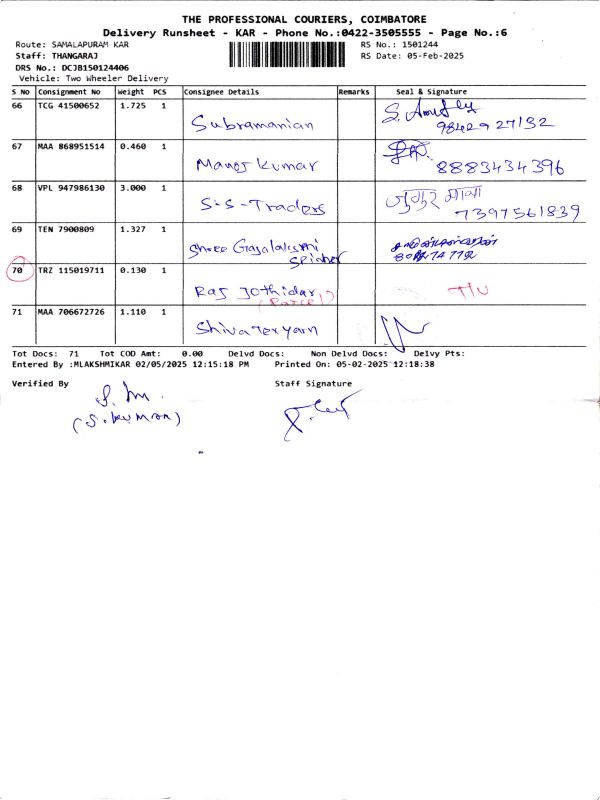 THE PROFESSIONAL COURIERS, COIMBATORE
Delivery Runsheet - KAR - Phone No.:0422-3505555 - Page No.:6
Route: SAMALAPURAM KAR RS No.: 1501244
Staff: THANGARAJ RS Date: 05-Feb-2025
DRS No.: DCJB150124406
Vehicle: Two Wheeler Delivery
S No Consignment No Weight PCS Consignee Details Remarks Seal & Signature
66 TCG 41500652 1.725 1
Subramanian 9842927132
67 MAA 868951514 0.460 1
Manoj kumar 8883434396
68 VPL 947986130 3.000 1
S-S-Traders 7397561839
69 TEN 7900809 1.327 1
Shree Gajalakshmi
70 TRZ 115019711 0.130 1
Raj Jothidar
71 MAA 706672726 1.110 1
Tot Docs: 71 Tot COD Amt: 0.00 Delvd Docs: Non Delvd Docs: Delvy Pts:
Entered By :MLAKSHMIKAR 02/05/2025 12:15:18 PM Printed On: 05-02-2025 12:18:38
Verified By Staff Signature
(S.kumar)